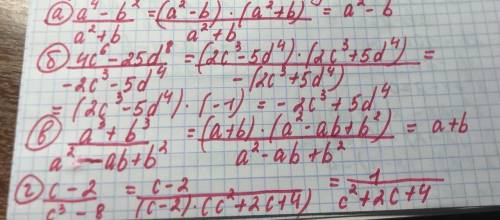 а) a⁴ - b² / a² + b = (a² - b) · (a² + b) / a² + b = a² - b
б) 4c⁶ - 25d⁸ / -2c³ - 5d⁴ = (2c³ - 5d⁴) · (2c³ + 5d⁴) / -(2c³ + 5d⁴) =
= (2c³ - 5d⁴) · (-1) = -2c³ + 5d⁴
в) a³ + b³ / a² - ab + b² = (a + b) · (a² - ab + b²) / a² - ab + b² = a + b
г) c - 2 / c³ - 8 = c - 2 / (c - 2) · (c² + 2c + 4) = 1 / c² + 2c + 4